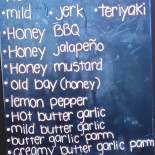 •mild •Jerk •teriyaki
•Honey BBQ
•Honey Jalapeño
•Honey mustard
•old bay (honey)
•lemon pepper
•Hot butter garlic
•mild butter garlic
•butter garlic parm
•creamy butter garlic parm